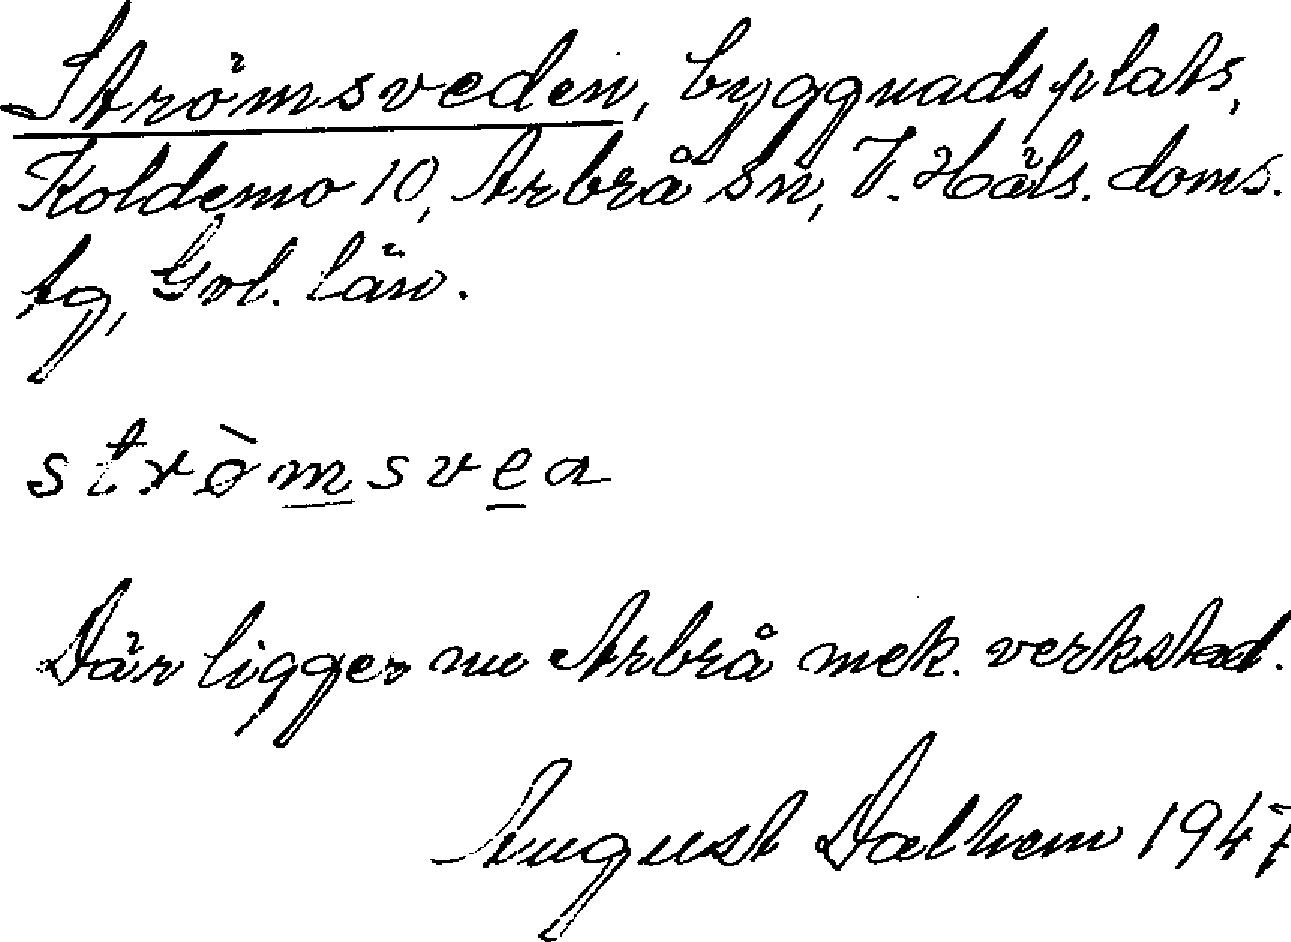 Strömsveden, byggnadsplats,
Koldemo 10, Arbrå sn, V. Häls. doms.
tg, Gvl. län.
stròmsvea
Där ligger nu Arbrå mek. verkstad.
August Dalhem 1947